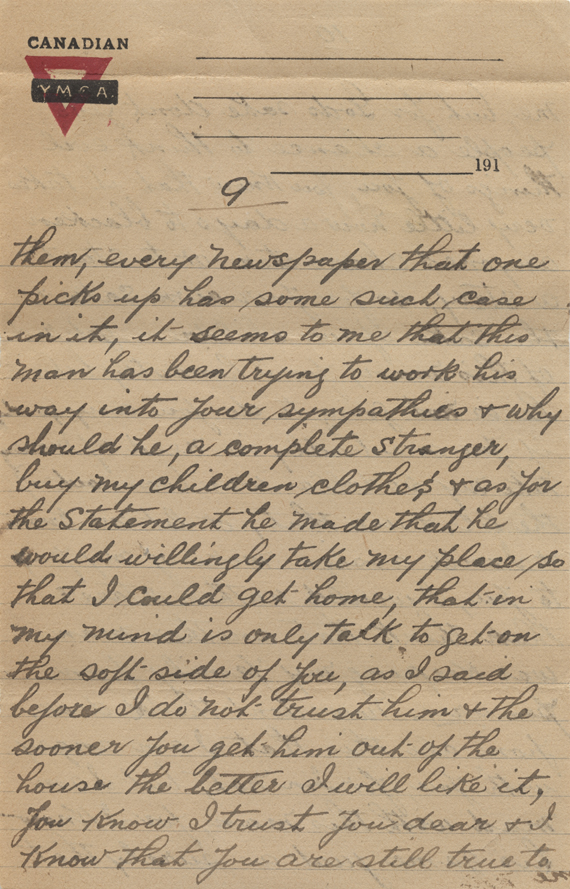 CANADIAN
YMCA.
191
9
them, every newspaper that one
picks up has some such case
in it, it seems to me that this
man has been trying to work his
way into your sympathies & why
should he, a complete stranger,
buy my children clothes & as for
the Statement he made that he
would willingly take my place so
that I could get home, that in
my mind is only talk to get on
the soft side of you, as I said
before I do not trust him & the
sooner you get him out of the
house the better I will like it,
You know I trust you dear & I
know that you are still true to
me